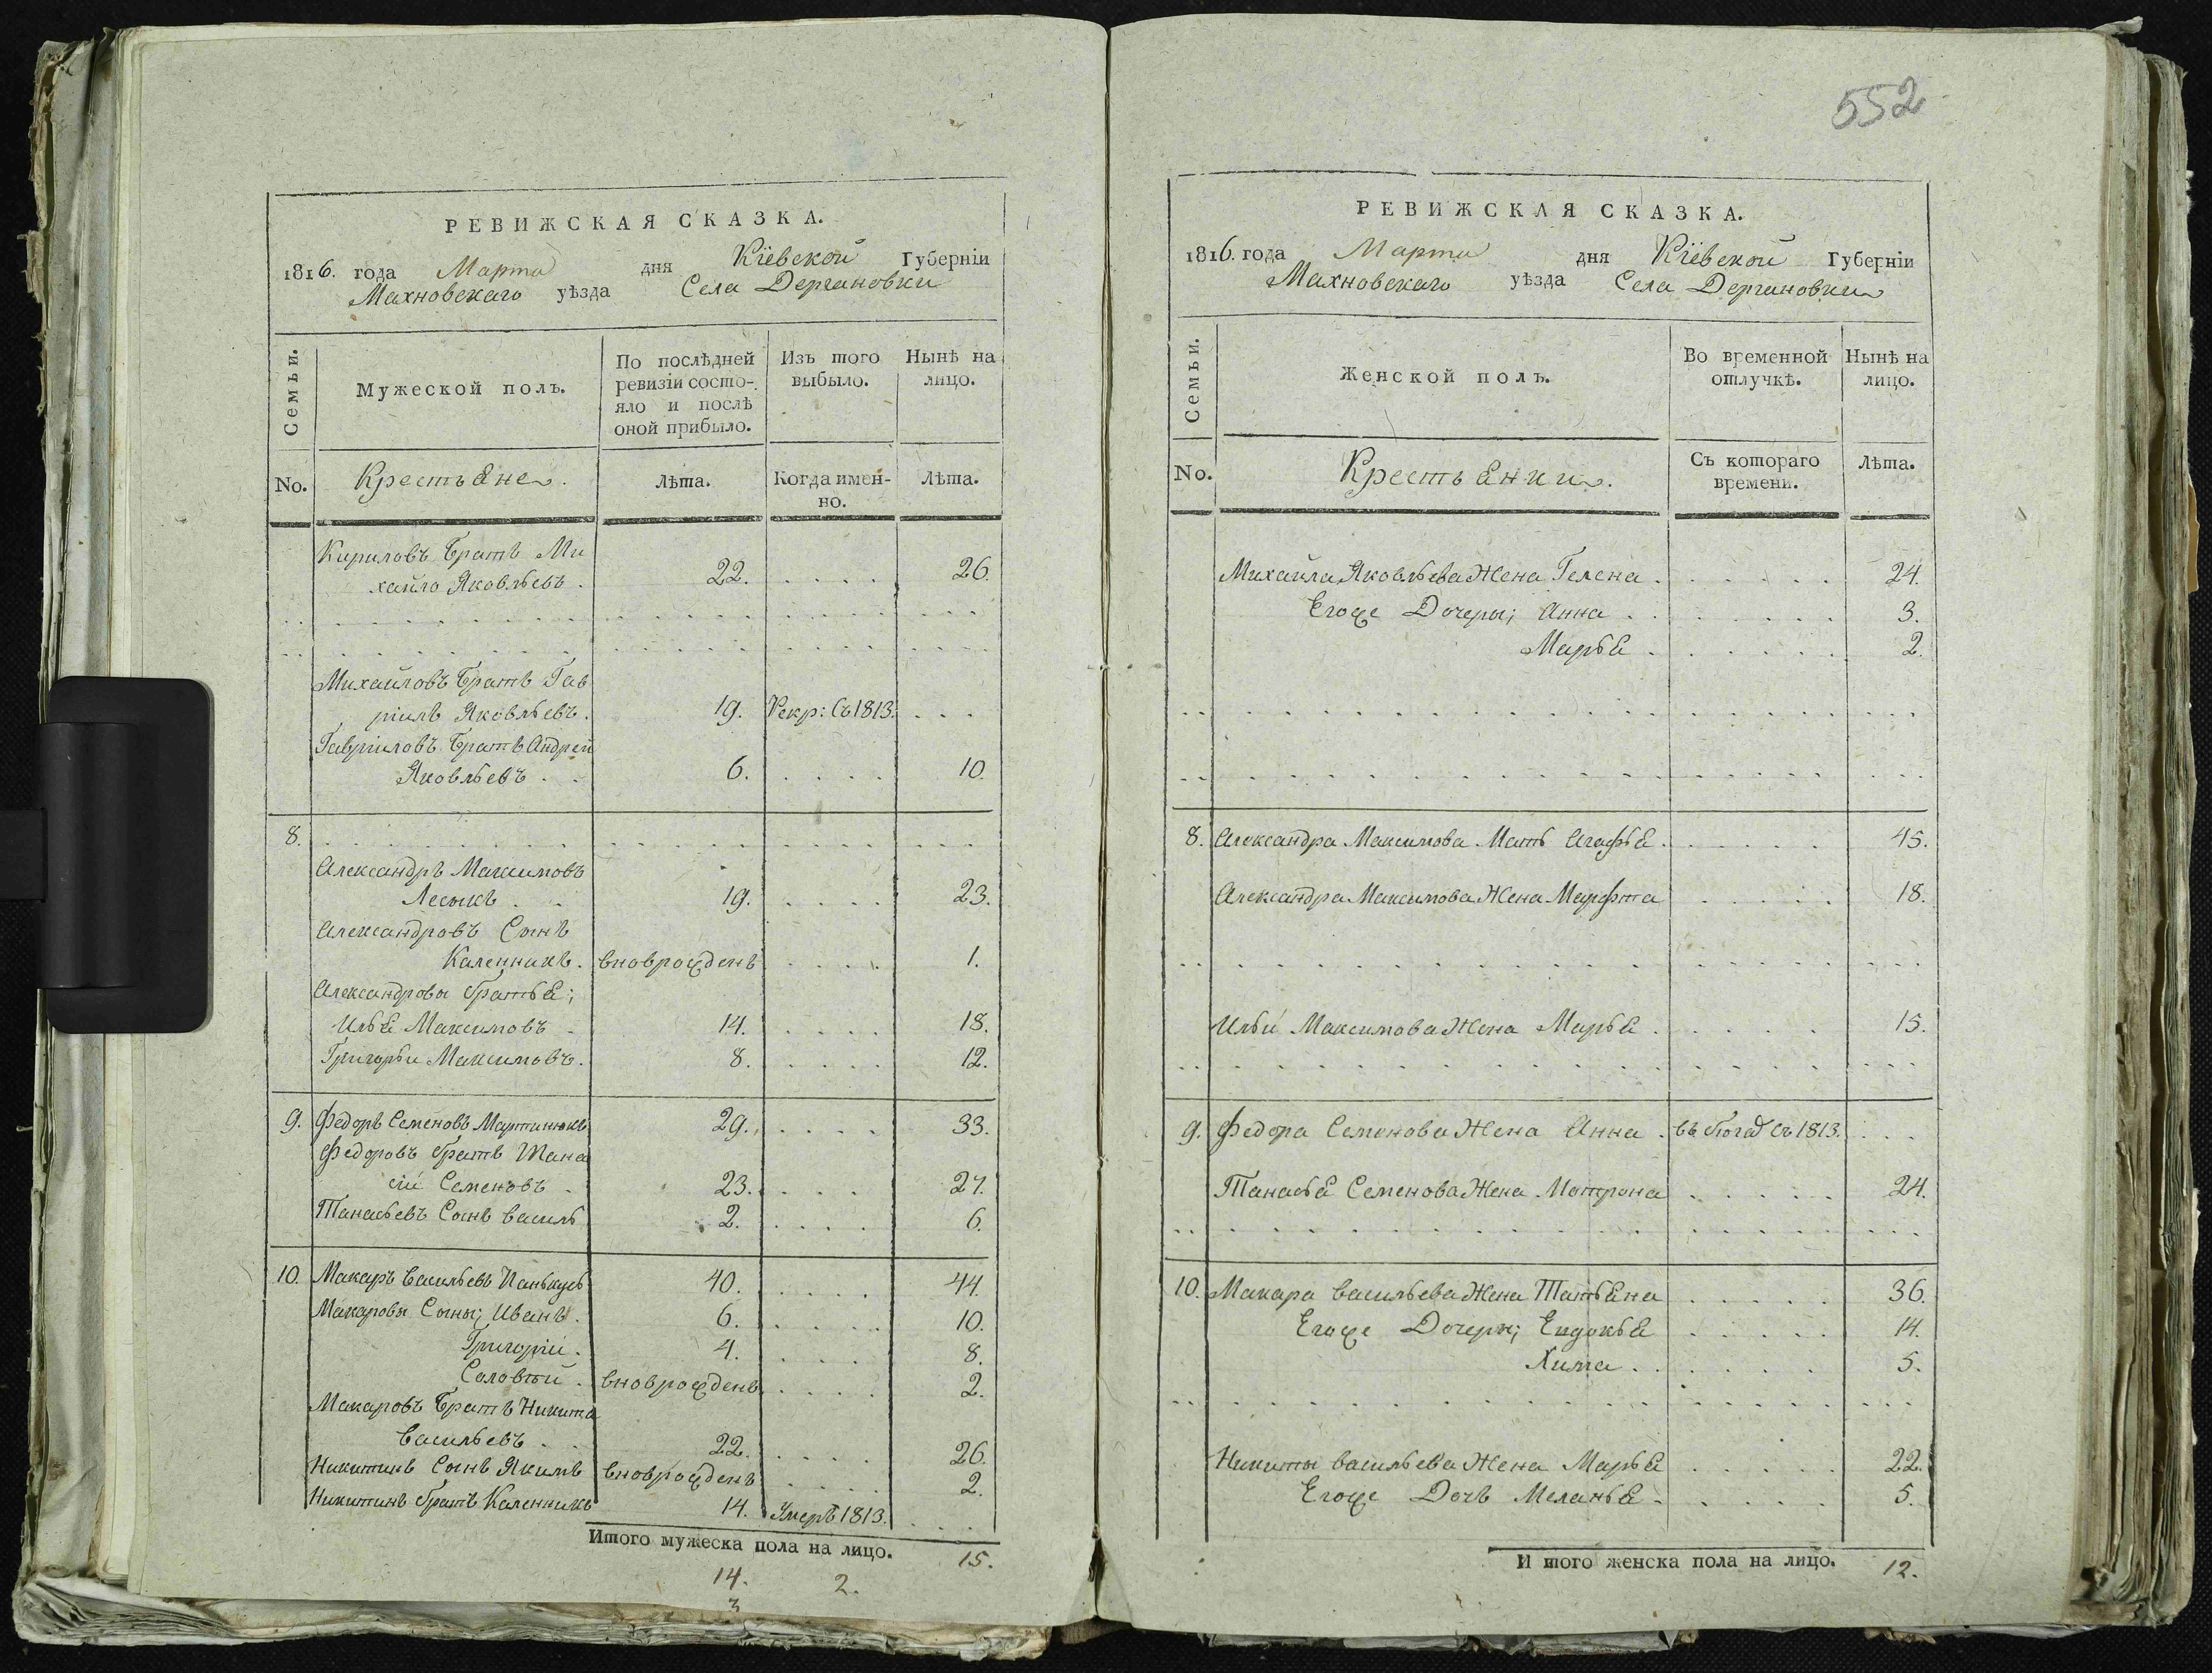 РЕВИЖСКАЯ СКАЗКА.
1816. года Марта дня Кіевской Губерніи
Махновскаго уѣзда Села Дергановки
Семьи.
Мужеской полъ.
По послѣдней ревизіи состо-
яло и послѣ оной прибыло.
Изъ того выбыло.
Нынѣ на лицо.
No.
Крестьяне.
лѣта.
Когда имен-
но.
Лѣта.
Кириловъ Братъ Ми
хайло Яковлѣевъ. 22. 26.
Михайловъ Братъ Гав
ріилъ Яковлѣевъ. 19. Рекр: Съ 1813.
Гавріиловъ Братъ Андрей
Яковлѣевъ. 6. 10.
8.
Александръ Максимовъ
Лесыкъ. 19. 23.
Александровъ Сынъ
Каленникъ. вноврожденъ 1.
Александровы братья;
Илья Максимовъ 14. 18.
Григорьи Максимовъ. 8. 12.
9. Федоръ Семеновъ Мартинюкъ 29. 33.
Федоровъ братъ Танас
сіи Семеновъ. 23. 27.
Танасьевъ Сынъ василь 2. 6.
10. Макаръ васильевъ Панькусь 40. 44.
Макаровы Сыны; Иванъ. 6. 10.
Григоріи. 4. 8.
Соловѣй. вноврожденъ 2.
Макаровъ Братъ Никита
васильевъ. 22. 26.
Никитинъ Сынъ Якимъ вноврожденъ 2.
Никитинъ братъ Каленникъ 14. Умеръ 1813.
Итого мужеска пола на лицо. 15.
14. 2.
3
552
РЕВИЖСКАЯ СКАЗКА.
1816. года Марта дня Кіевской Губерніи
Махновскаго уѣзда Села Дергановки
Семьи.
Женской полъ.
Во временной отлучкѣ.
Нынѣ на лицо.
No.
Крестьянки.
Съ котораго времени.
Лѣта.
Михайла Яковлѣева Жена Гелена. 24.
Егоже Дочеры; Анна. 3.
Марья. 2.
8. Александра Максимова Мать Агафья. 45.
Александра Максимова Жена Марфта 18.
Ильи Максимова Жена Марья. 15.
9. Федора Семенова Жена Анна. съ 1813.
Танасья Семенова Жена Мотрона 24.
10. Макара васильева Жена Татьяна 36.
Егоже Дочеры; Евдокья 14.
Хима. 5.
Никиты васильева Жена Марья 22.
Егоже Дочь Меланья. 5.
Итого женска пола на лицо. 12.